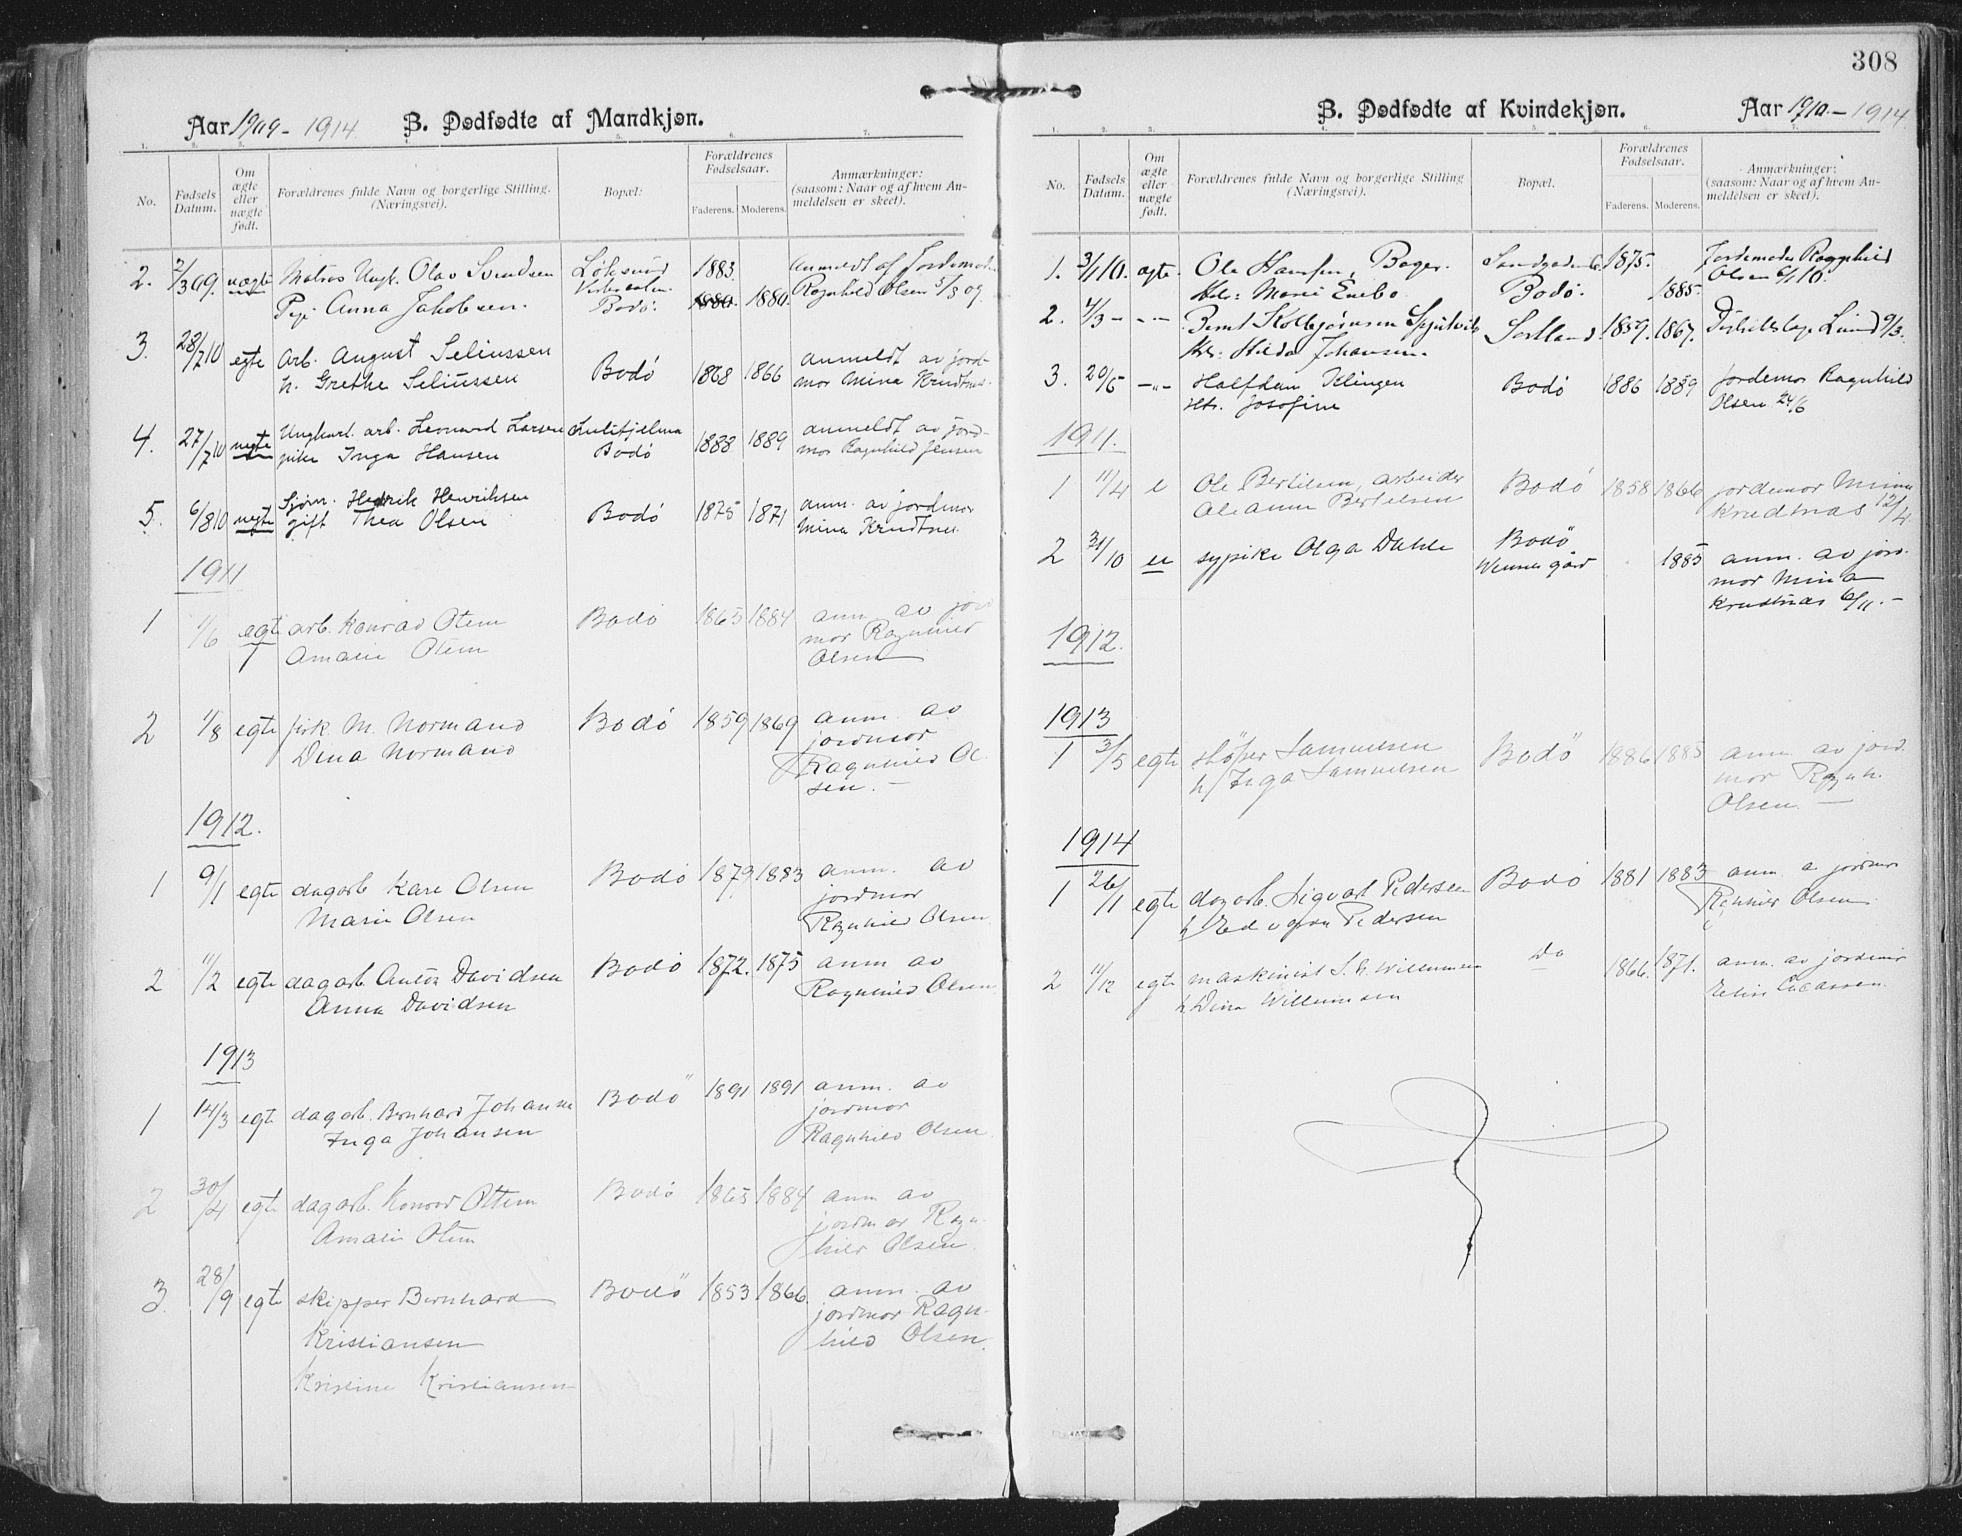 Aar 1909 - 1914. B. Dødfødte af Mandkjøn.
1. 2. 3. 5. 6. 7.
No.
Fødsels Datum.
Om ægte eller uægte født.
Forældrenes fulde Navn og borgerlige Stilling. (Næringsvei).
Bopæl:
Forældrenes Fødselsaar.
Faderens. Moderens.
Anmærkninger: (saasom: Naar og af hvem Anmeldelsen er skeet).
2. 2/3 09. uægte Matros Ungk. Olav Svendsen 1883. Anmeldt af Jordemoder
Pige Anna Jakobsen. Bodø. 1880. 1880. Ragnhild Olsen 5/3 09.
3. 28/7 10 egte Arb. August Seliussen Bodø 1868 1866 anmeldt av jord-
h. Grethe Seliussen mor Mina Krudtnes.
4. 27/7 10 uegte Ungkarl. arb. Leonard Larsen Sulitjelma 1888 1889 anmeldt av jord-
pike Inga Hansen Bodø mor Ragnhild Jensen
5. 6/8 10 uegte Sjøm. Hedrik Henriksen Bodø 1875 1871 anm. av jordmor
gift Thea Olsen Mina Krudtnes
1911
1 1/6 egte arb. Konrad Otem Bodø 1865 1884 anm. av jord
Amalie Otem mor Ragnhild
Olsen
2 1/8 egte M. Normand Bodø 1859 1869 anm. av
Dina Normand jordmor
Ragnhild Ol-
sen. -
1912.
1 9/1 egte dagarb Kare Olsen Bodø 1879 1883 anm. av
Marie Olsen jordmor
Ragnhild Olsen
2 11/2 egte dagarb. Anton Davidsen Bodø 1872. 1875 anm av
Anna Davidsen Ragnhild Olsen
1913
1 14/3 egte dagarb. Bernhard Johansen Bodø 1891 1891 anm. av
Inga Johansen jordmor
Ragnhild Olsen
2 30/4 egte dagarb. Konrad Ottem Bodø 1865 1884 anm av
Amalie Otem jordmor Ragn-
hild Olsen
3. 28/9 egte skipper Bernhard Bodø 1853 1866. anm. av
Kristiansen jordmor Ragn-
Kristine Kristiansen hild Olsen.
308
B. Dødfødte af Kvindekjøn. Aar 1910. - 1914.
1. 2. 3. 4. 5. 6. 7.
No.
Fødsels Datum.
Om ægte eller uægte født.
Forældrenes fulde Navn og borgerlige Stilling (Næringsvei).
Bopæl.
Forældrenes Fødselsaar.
Faderens. Moderens.
Anmærkninger: (saasom: Naar og af hvem Anmeldelsen er skeet).
1. 3/1 10. ægte. Ole Hansen, Bager. 1875. Jordemoder Ragnhild
Marie Enebo. Bodø. 1885. Olsen 6/1 10.
2. 4/3 - -"- Bernt Kolbjørnsen Sortland. 1859. 1867. Distriktslæge Lund 9/3.
Hilda Johansen.
3. 20/5 -"- Halfdan Klingen Bodø 1886 1889 Jordemor Ragnhild
Josefine Olsen 24/6
1911.
1 11/4 e Ole Bertelsen, arbeider Bodø 1858 1866 jordemor Mina
Oleanna Bertelsen Krudtnæs 12/4.
2 31/10 ue sypike Olga Dahle Bodø 1885 anm. av jord-
gård mor Mina
Krudtnæs 6/11. -
1912.
1913
1 3/5 egte støper Samuelsen Bodø 1886 1885 anm. av jord.
h/ Inga Samuelsen mor Ragnh.
Olsen. -
1914
1 26/1 egte dagarb. Sigvat Pedersen Bodø 1881 1883 anm. a jordmor
Pedersen Olsen
2 11/12 egte maskinist Willumsen Do 1866. 1871. anm. av jordmor
h Dina Willumsen